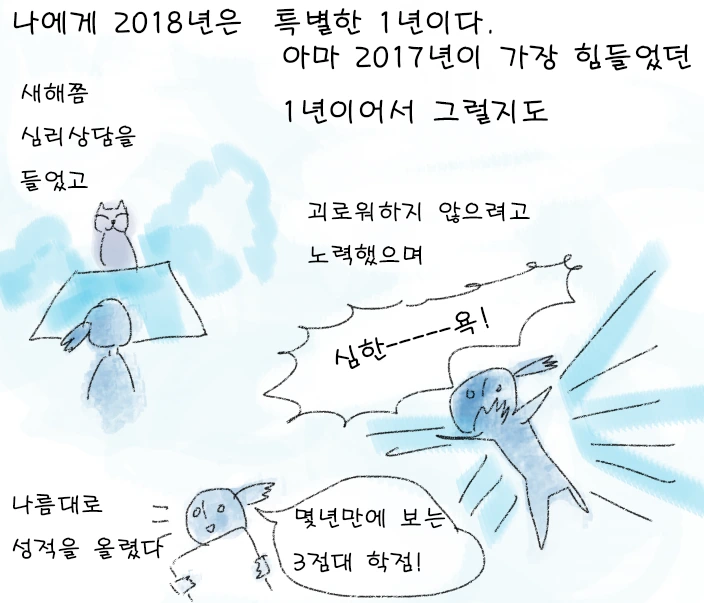 나에게 2018년은 특별한 1년이다.
아마 2017년이 가장 힘들었던
1년이어서 그럴지도
새해쯤
심리상담을
들었고
괴로워하지 않으려고
노력했으며
심한-----욕!
나름대로
성적을 올렸다
몇년만에 보는
3점대 학점!